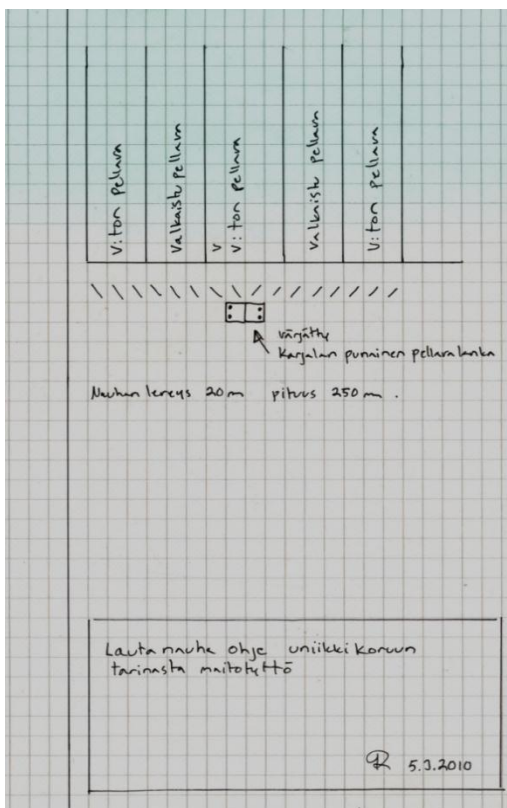 V:ton pellava
Valkaistu pellava
V
V:ton pellava
Valkaistu pellava
V:ton pellava
värjätty
Karjalan punainen pellavalanka
Nauhan leveys 20 m pituus 250 m .
Lauta nauha ohje uniikki koruun
tarinasta maitotyttö
R 5.3.2010